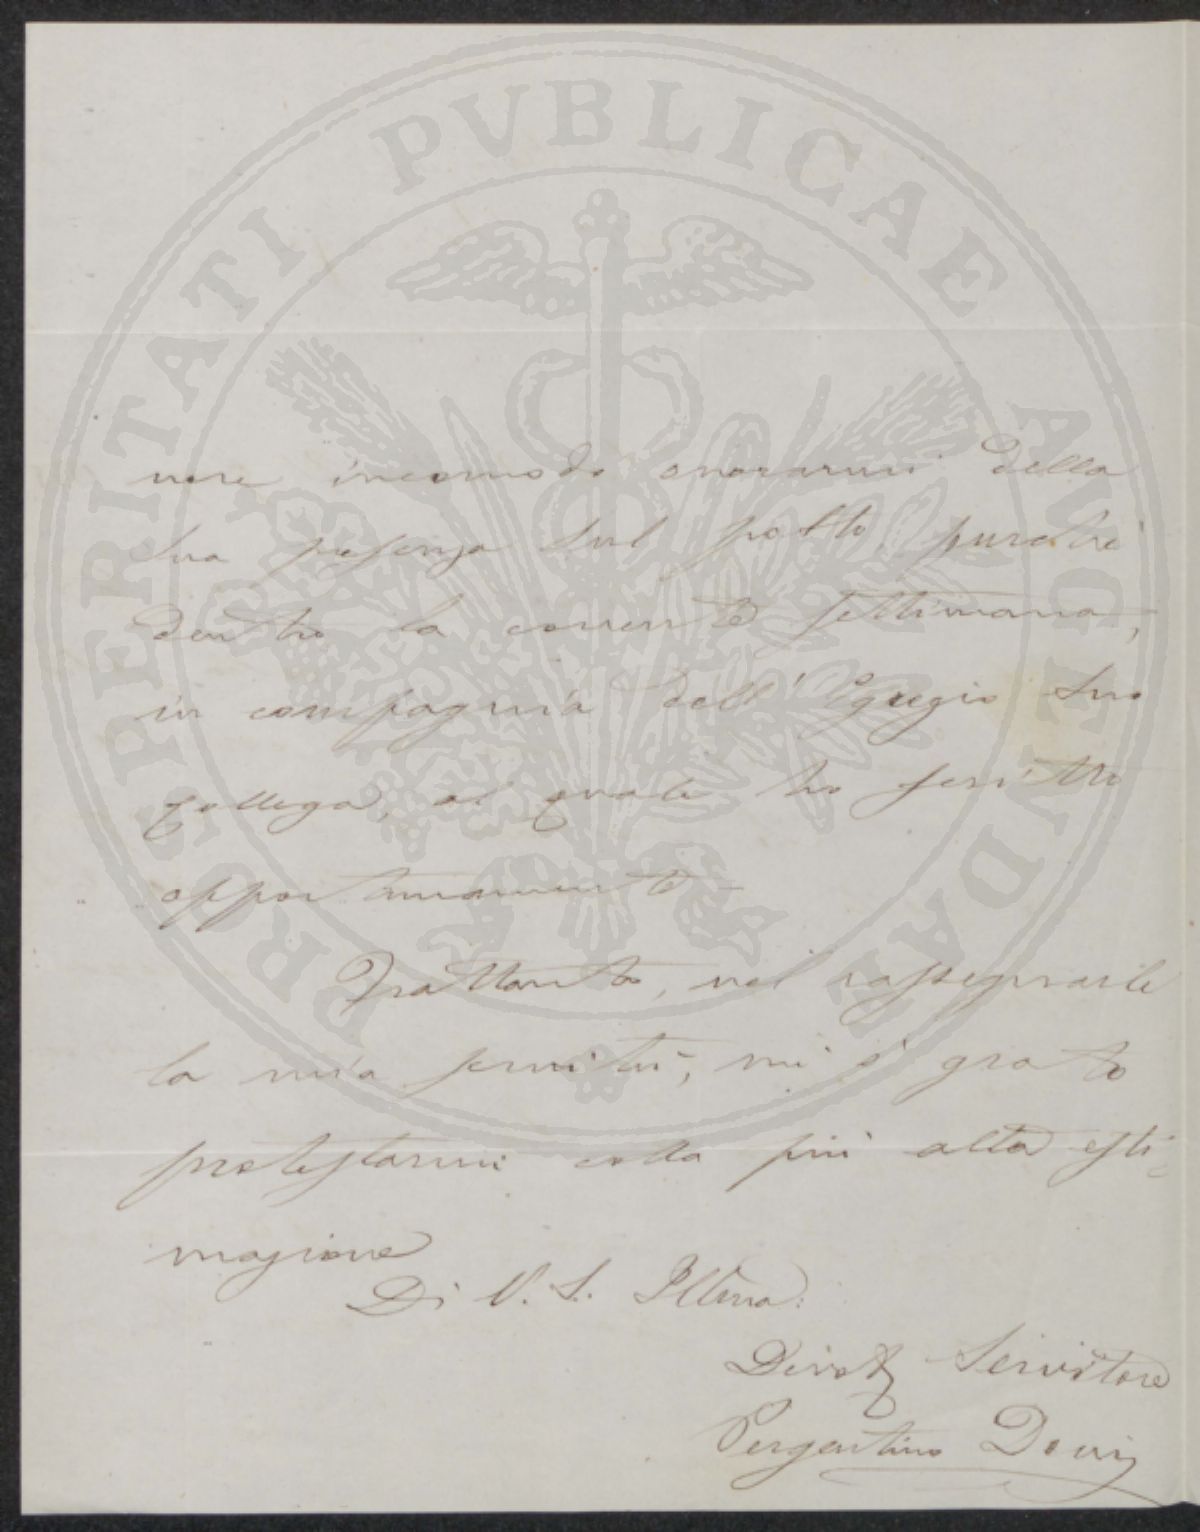 PROSPERITATI PVBLICAE AVGENDAE
nore incomodo onorarmi della
Sua presenza sul posto, purchè
dentro la corrente settimana,
in compagnia dell'Egregio Suo
collega, al quale ho scritto
opportunamente –
Frattanto, nel rassegnarle
la mia servitù, mi è grato
protestarmi colla più alta esti-
mazione
Di V. S. Illma:
Devot Servitore
Pergentino Doni